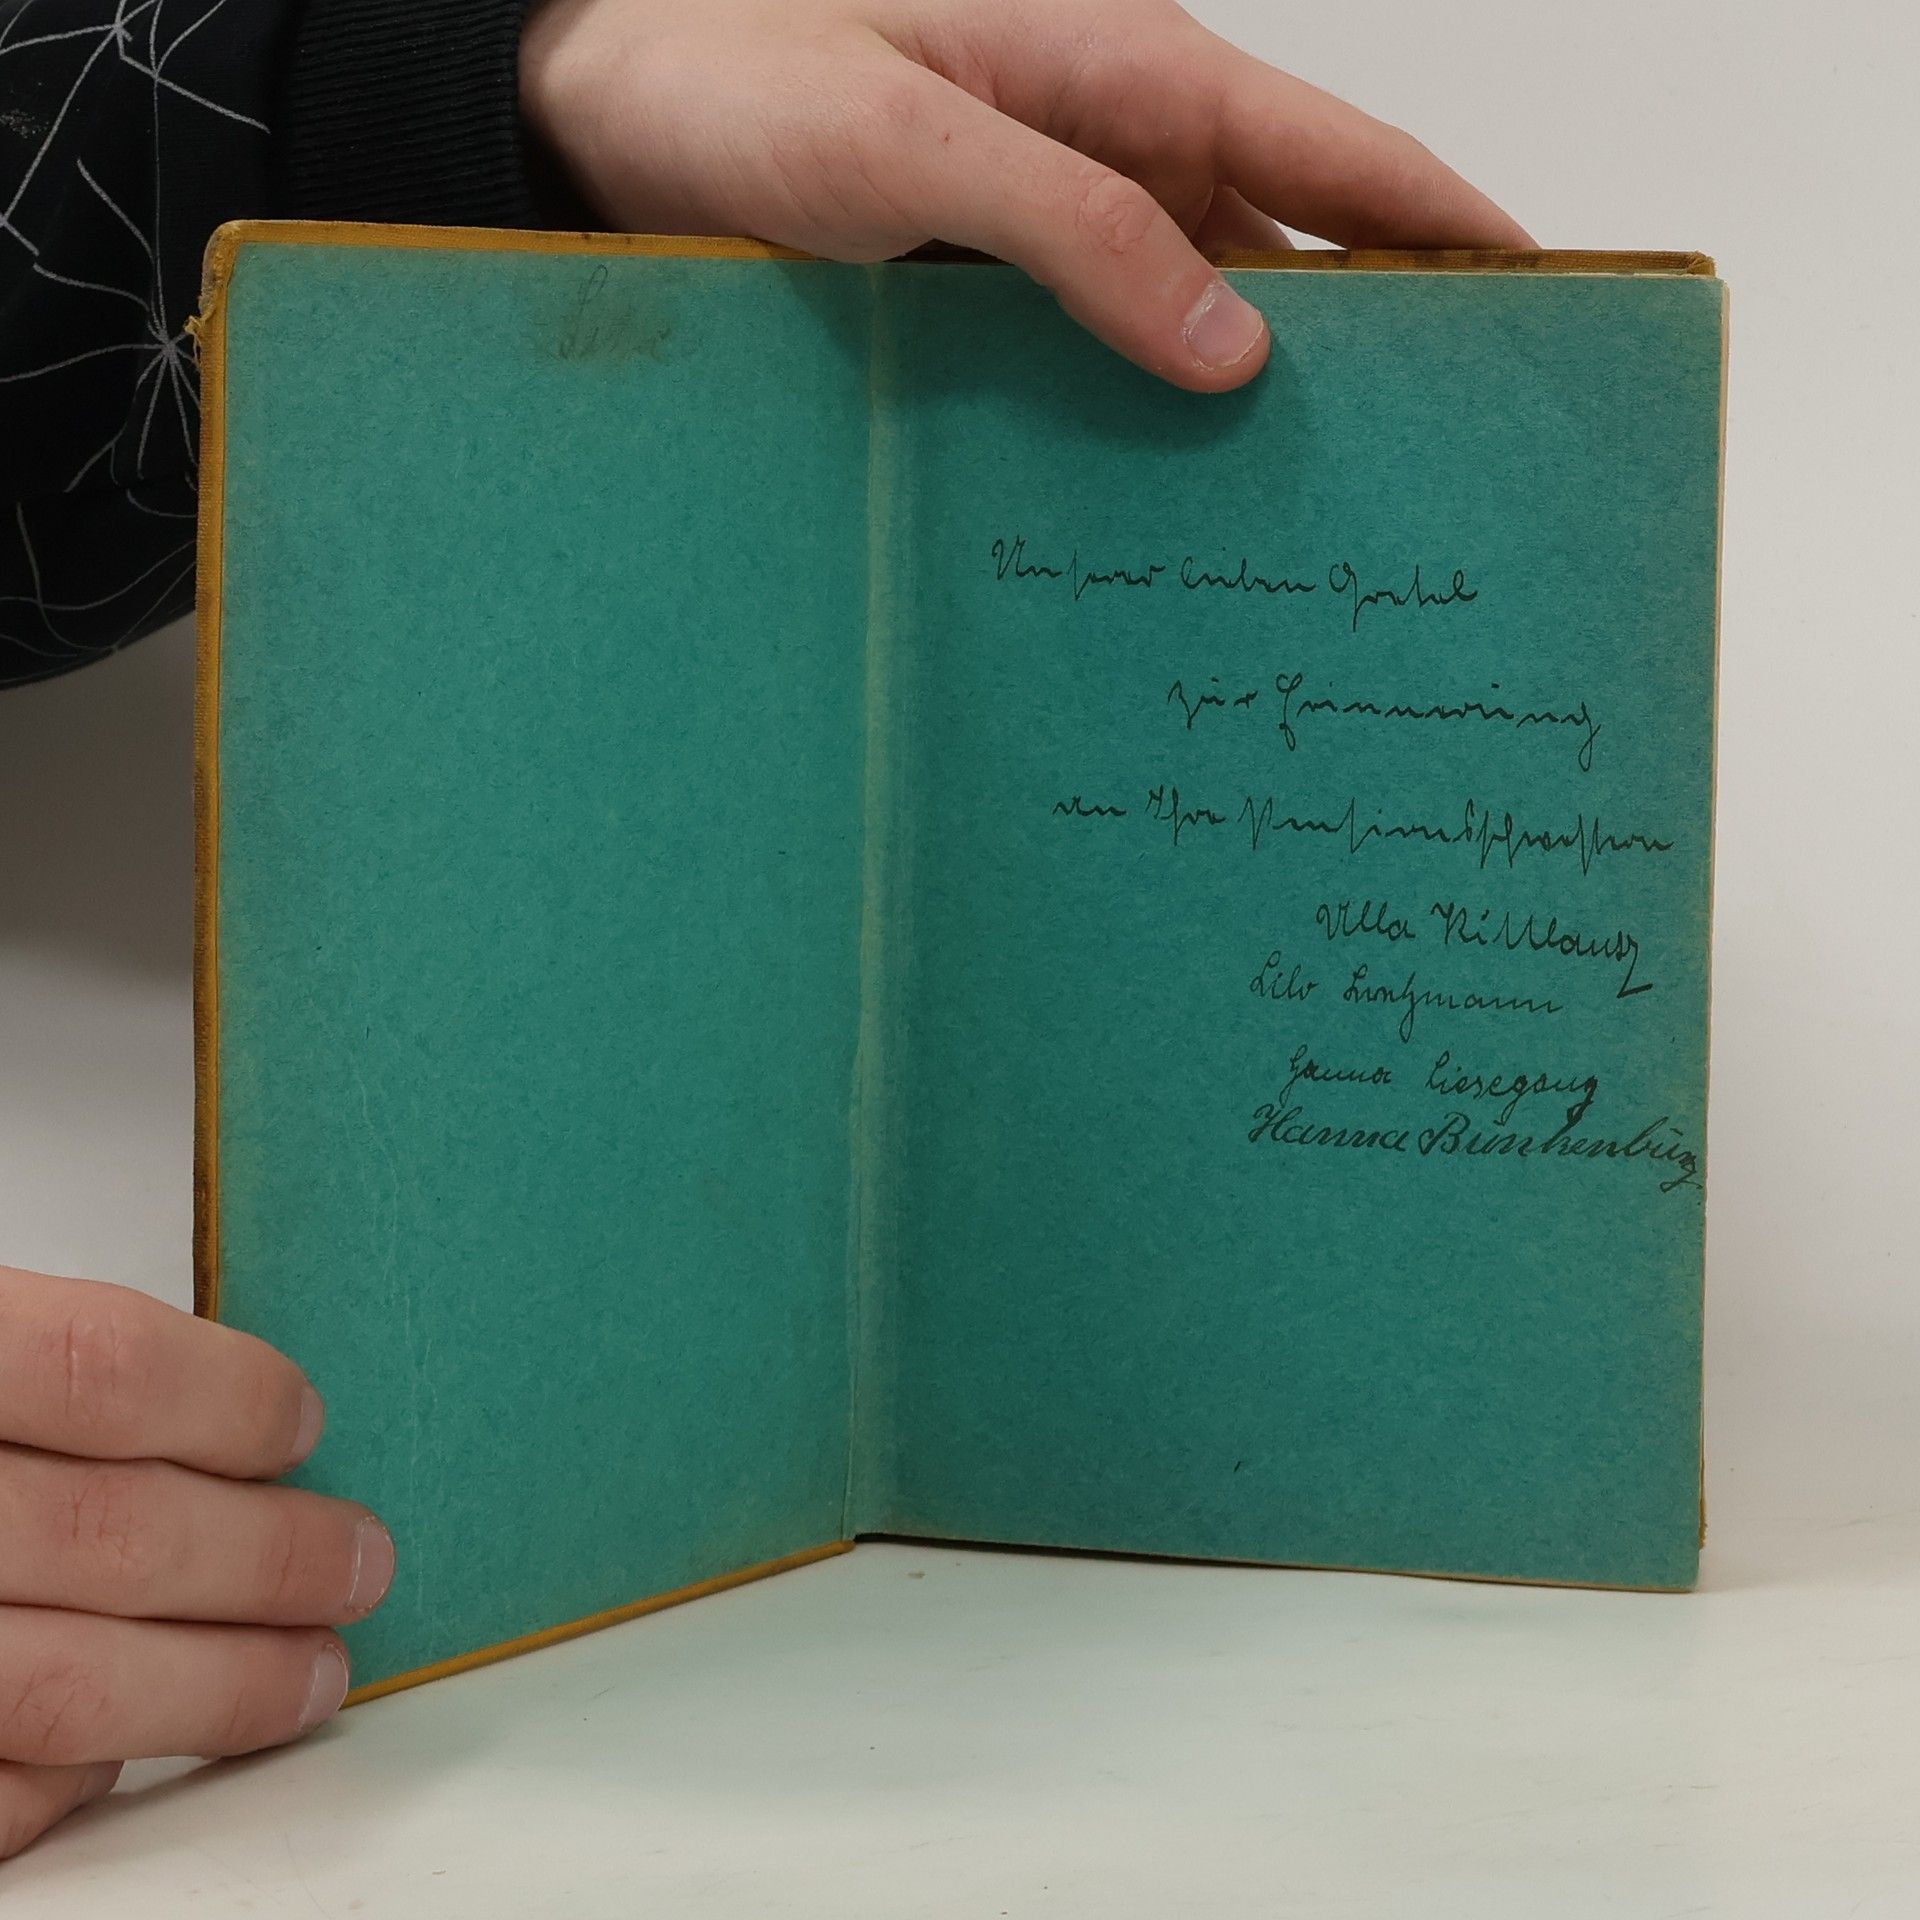 Unserer lieben Gretel
zur Erinnerung
an Ihre Pensionsschwestern
Ulla
Lilo
Hanna Liesegang
Hanna Bunkenburg